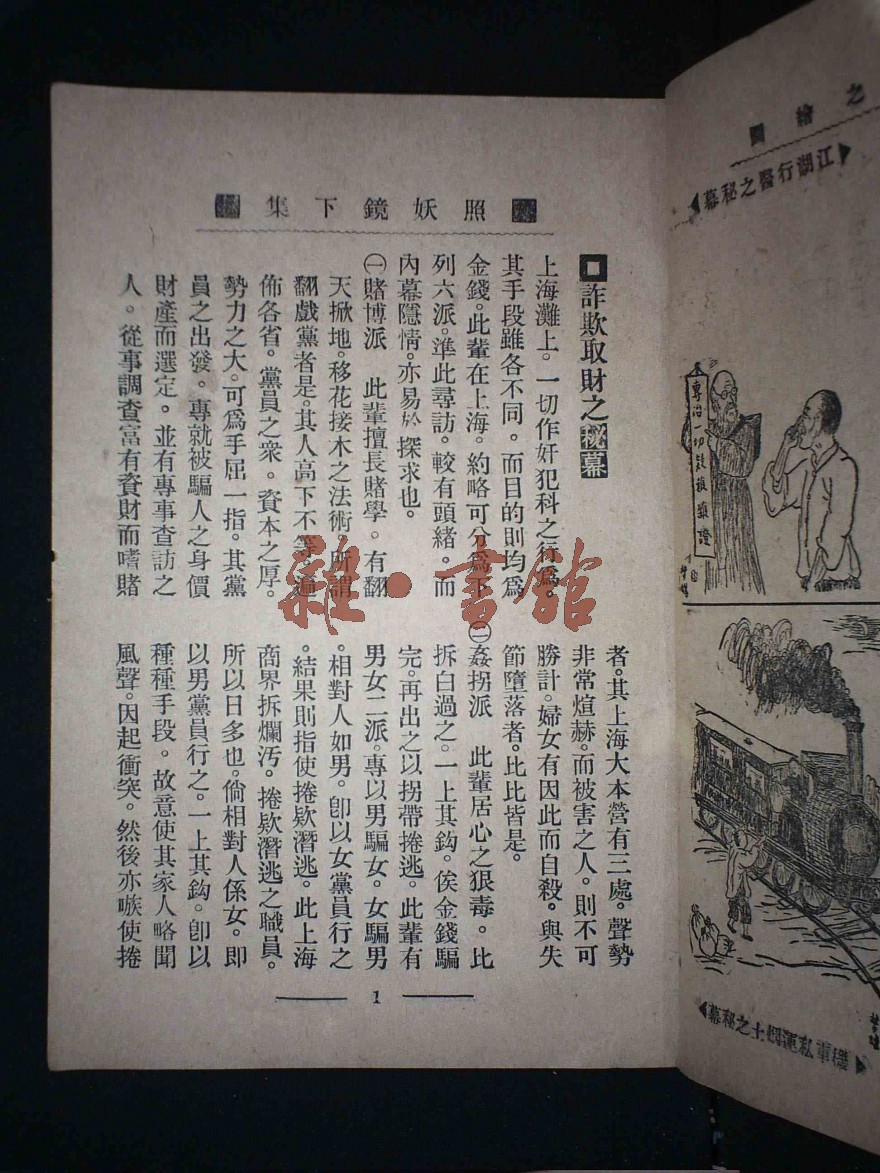 照妖鏡下集
詐欺取財之秘幕
上海灘上。一切作奸犯科之行爲。
其手段雖各不同。而目的則均爲
金錢。此輩在上海。約略可分爲下
列六派。準此尋訪。較有頭緒。而
內幕隱情。亦易於探求也。
㊀賭博派　此輩擅長賭學。有翻
天掀地。移花接木之法術。所謂
翻戲黨者是。其人高下不等。遍
佈各省。黨員之衆。資本之厚。
勢力之大。可爲手屈一指。其黨
員之出發。專就被騙人之身價
財產而選定。並有專事查訪之
人。從事調查富有資財而嗜賭
者。其上海大本營有三處。聲勢
非常煊赫。而被害之人。則不可
勝計。婦女有因此而自殺。與失
節墮落者。比比皆是。
㊁姦拐派　此輩居心之狠毒。比
拆白過之。一上其鈎。俟金錢騙
完。再出之以拐帶捲逃。此輩有
男女二派。專以男騙女。女騙男
。相對人如男。卽以女黨員行之
。結果則指使捲欵潛逃。此上海
商界拆爛汚。捲欵潛逃之職員。
所以日多也。倘相對人係女。即
以男黨員行之。一上其鈎。卽以
種種手段。故意使其家人略聞
風聲。因起衝突。然後亦嗾使捲
1
之繪圖
江湖行醫之秘幕
專治一切
機車私運烟土之秘幕
雜·書館